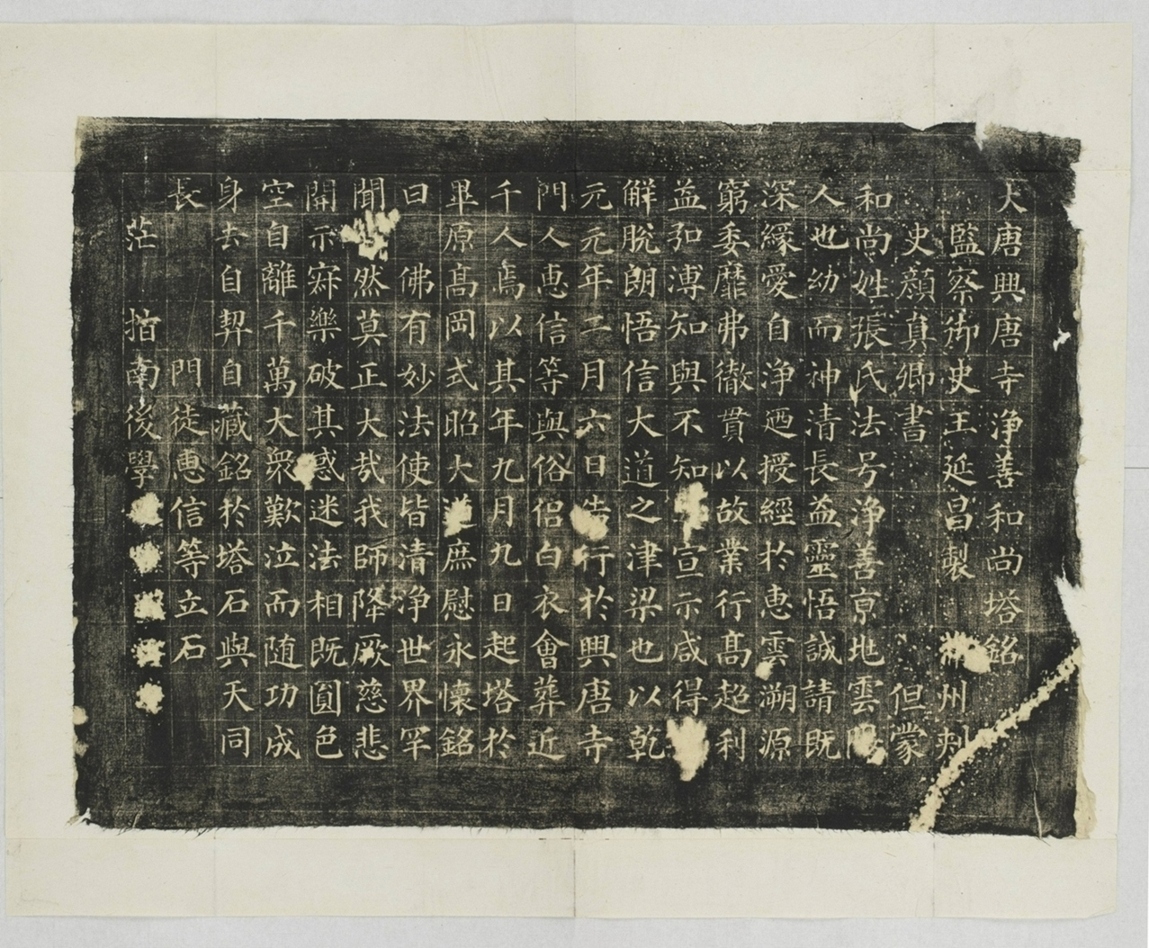 大唐興唐寺淨善和尚塔銘
監察御史王延昌製 州刾
史顏真卿書 但蒙
和尚姓張氏法号淨善京地雲陽
人也幼而神清長益靈悟誠請既
深緣愛自淨迺授經於惠雲溯源
窮委靡弗徹貫以故業行髙超利
益弘溥知與不知 宣示咸得
解脫朗悟信大道之津梁也以乾
元元年二月六日告行於興唐寺
門人惠信等與俗侣白衣會葬近
千人焉以其年九月九日起塔於
畢原髙岡式昭大道庶慰永懷銘
曰 佛有妙法使皆清淨世界罕
聞 然莫正大哉我師降厥慈悲
開示寂樂破其惑迷法相既圓色
空自離千萬大衆歎泣而随功成
身去自契自藏銘於塔石與天同
長 門徒惠信等立石
茫 指南後學